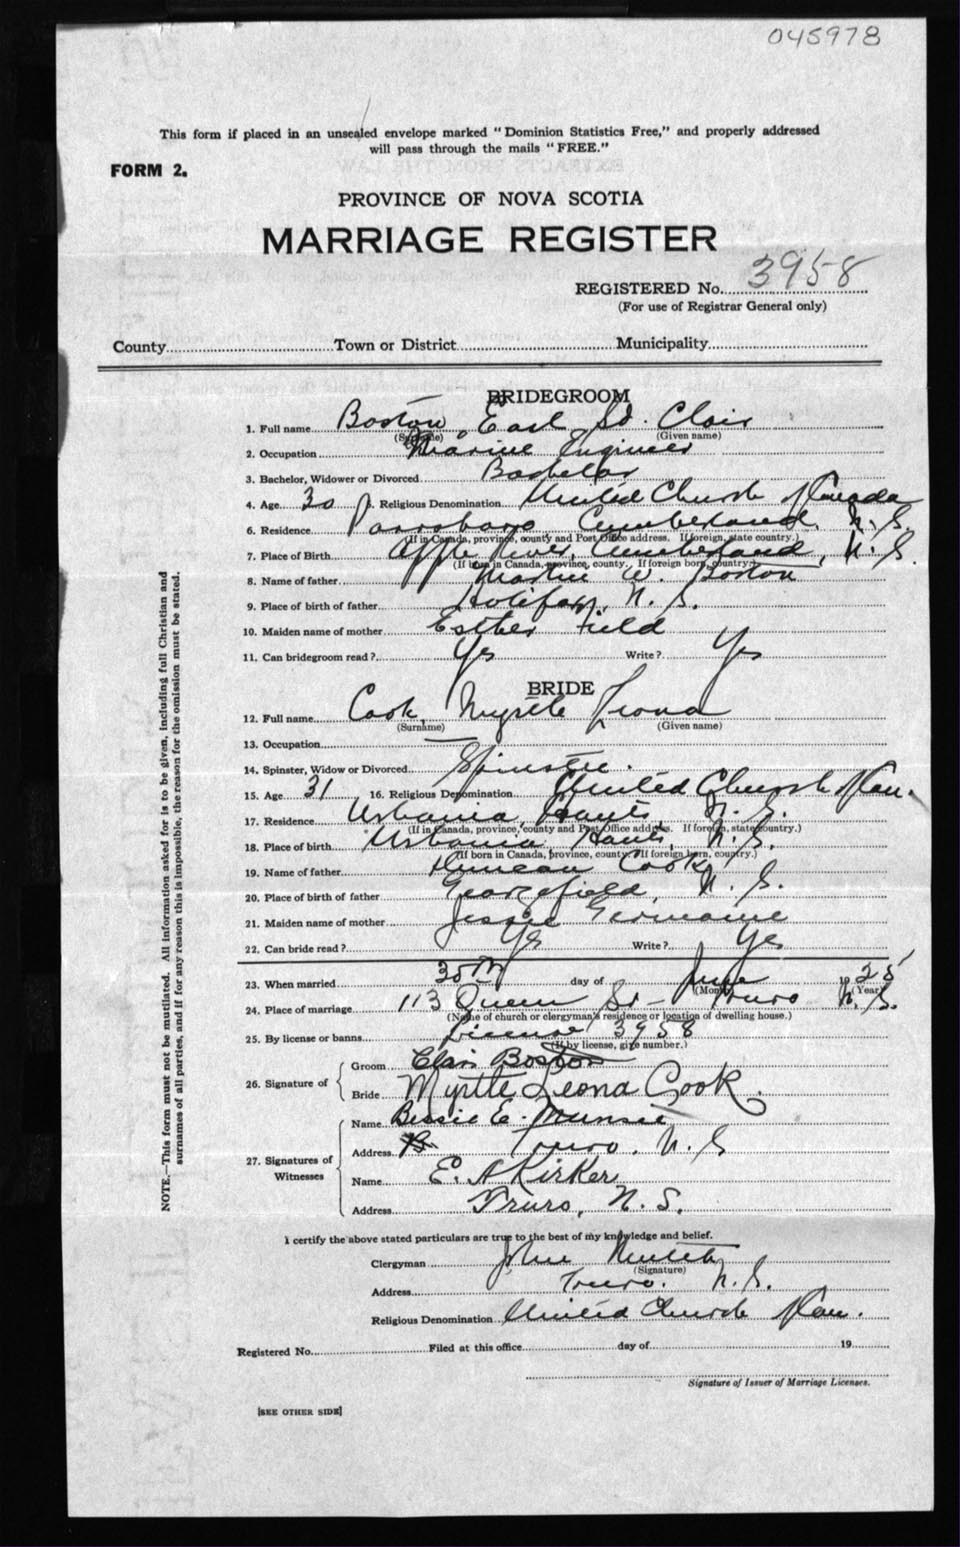 045978
This form if placed in an unsealed envelope marked "Dominion Statistics Free," and properly addressed
will pass through the mails "FREE."
FORM 2.
PROVINCE OF NOVA SCOTIA
MARRIAGE REGISTER
REGISTERED No. 3958
(For use of Registrar General only)
County Town or District Municipality
BRIDEGROOM
1. Full name Boston, Earl St. Clair
(Surname) (Given name)
2. Occupation Marine Engineer
3. Bachelor, Widower or Divorced Bachelor
4. Age 30 5. Religious Denomination United Church of Canada
6. Residence Parrsboro Cumberland, N.S.
(If in Canada, province, county and Post Office address. If foreign, state country.)
7. Place of Birth Apple River, Cumberland, N.S.
(If born in Canada, province, county. If foreign born, country.)
8. Name of father Martin W. Boston
9. Place of birth of father Halifax, N.S.
10. Maiden name of mother Esther Field
11. Can bridegroom read? Yes Write? Yes
BRIDE
12. Full name Cook, Myrtle Leona
(Surname) (Given name)
13. Occupation —
14. Spinster, Widow or Divorced Spinster.
15. Age 31 16. Religious Denomination United Church of Can.
17. Residence Urbania, Hants, N.S.
(If in Canada, province, county and Post Office address. If foreign, state country.)
18. Place of birth Urbania Hants, N.S.
(If born in Canada, province, county. If foreign born, country.)
19. Name of father Duncan Cook
20. Place of birth of father Georgefield, N.S.
21. Maiden name of mother Jessie Germaine
22. Can bride read? Yes Write? Yes
23. When married 30th day of June 1925
(Month) (Year)
24. Place of marriage 113 Queen St - Truro N.S.
(Name of church or clergyman's residence or location of dwelling house.)
25. By license or banns License 3958
(If by license, give number.)
26. Signature of Groom Clair Boston
Bride Myrtle Leona Cook.
27. Signatures of Witnesses
Name Bessie E.
Address Truro, N.S
Name E. A Kirker
Address Truro, N.S.
I certify the above stated particulars are true to the best of my knowledge and belief.
Clergyman John
(Signature)
Address Truro. N.S.
Religious Denomination United Church of Can.
Registered No. Filed at this office day of 19
Signature of Issuer of Marriage Licenses.
[SEE OTHER SIDE]
NOTE.—This form must not be mutilated. All information asked for is to be given, including full Christian and
surnames of all parties, and if for any reason this is impossible, the reason for the omission must be stated.